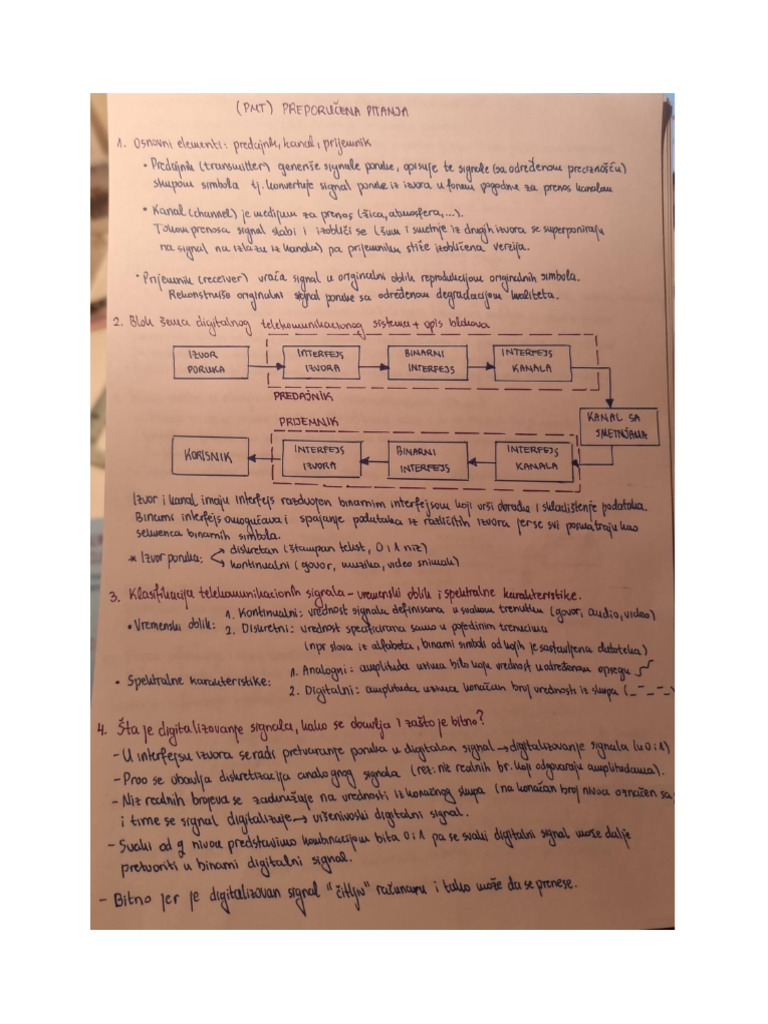 (PMT) PREPORUČENA PITANJA
1. Osnovni elementi: predajnik, kanal, prijemnik
• Predajnik (transmitter) generiše signale poruke, opisuje te signale (sa određenom preciznošću)
skupom simbola tj. konvertuje signal poruke iz izvora u formu pogodnu za prenos kanalom
• Kanal (channel) je medijum za prenos (žica, atmosfera,...).
Tokom prenosa signal slabi i izobliči se (šum i smetnje iz drugih izvora se superponiraju
na signal na izlazu iz kanala) pa prijemniku stiže izobličena verzija.
• Prijemnik (receiver) vraća signal u originalni oblik reprodukcijom originalnih simbola.
Rekonstruiše originalni signal poruke sa određenom degradacijom kvaliteta.
2. Blok šema digitalnog telekomunikacionog sistema + opis blokova
IZVOR PORUKA
INTERFEJS IZVORA
BINARNI INTERFEJS
INTERFEJS KANALA
PREDAJNIK
KANAL SA SMETNJAMA
PRIJEMNIK
KORISNIK
INTERFEJS IZVORA
BINARNI INTERFEJS
INTERFEJS KANALA
Izvor i kanal imaju interfejs razdvojen binarnim interfejsom koji vrši obradu i skladištenje podataka.
Binarni interfejs omogućava i spajanje podataka iz različitih izvora jer se svi posmatraju kao
sekvenca binarnih simbola.
* Izvor poruka: diskretan (štampan tekst, 0 i 1 niz)
kontinualni (govor, muzika, video snimak)
3. Klasifikacija telekomunikacionih signala – vremenski oblik i spektralne karakteristike.
• Vremenski oblik: 1. Kontinualni: vrednost signala definisana u svakom trenutku (govor, audio, video)
2. Diskretni: vrednost specificirana samo u pojedinim trenucima
(npr slova iz alfabeta, binarni simboli od kojih je sastavljena datoteka)
• Spektralne karakteristike: 1. Analogni: amplituda uzima bilo koju vrednost u određenom opsegu
2. Digitalni: amplituda uzima konačan broj vrednosti iz skupa
4. Šta je digitalizovanje signala, kako se obavlja i zašto je bitno?
- U interfejsu izvora se radi pretvaranje poruka u digitalan signal → digitalizovanje signala (u 0 i 1)
- Prvo se obavlja diskretizacija analognog signala (rez: niz realnih br. koji odgovaraju amplitudama).
- Niz realnih brojeva se zaokružuje na vrednosti iz konačnog skupa (na konačan broj nivoa označen sa
i time se signal digitalizuje → višenivoski digitalni signal.
- Svaki od q nivoa predstavimo kombinacijom bita 0 i 1 pa se svaki digitalni signal može dalje
pretvoriti u binarni digitalni signal.
- Bitno jer je digitalizovan signal "čitljiv" računaru i tako može da se prenese.